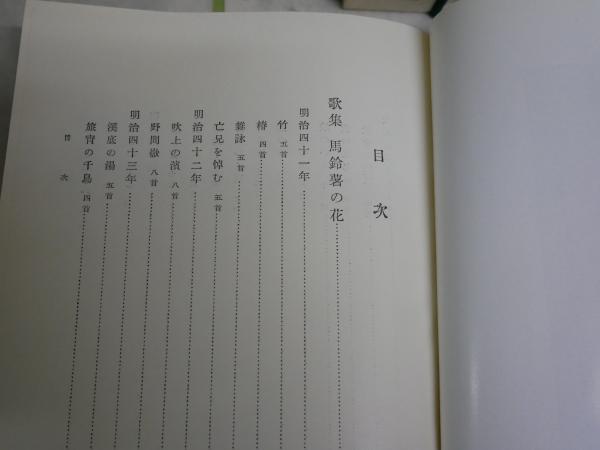 目次
歌集 馬鈴薯の花
明治四十一年
竹 五首
椿 四首
雜詠 五首
亡兄を悼む 五首
明治四十二年
吹上の濱 八首
野間嶽 八首
明治四十三年
溪底の湯 五首
旅宵の千鳥 四首
目次